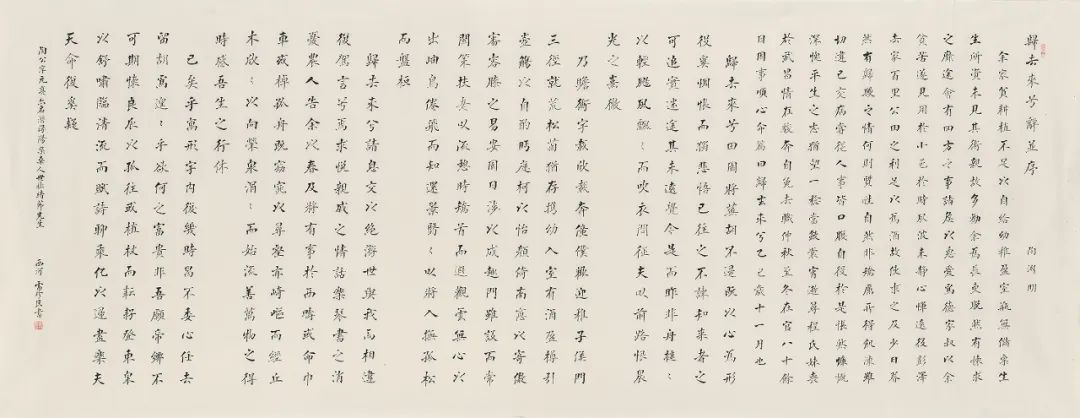 歸去來兮辭並序
陶淵明
余家貧耕植不足以自給幼稚盈室瓶無儲粟生
生所資未見其術親故多勸余為長吏脫然有懷求
之靡途會有四方之事諸侯以惠愛為德家叔以余
貧苦遂見用於小邑於時風波未靜心憚遠役彭澤
去家百里公田之利足以為酒故便求之及少日眷
然有歸歟之情何則質性自然非矯厲所得飢凍雖
切違己交病嘗從人事皆口腹自役於是悵然慷慨
深愧平生之志猶望一稔當斂裳宵逝尋程氏妹喪
於武昌情在駿奔自免去職仲秋至冬在官八十餘
日因事順心命篇曰歸去來兮乙巳歲十一月也
歸去來兮田園將蕪胡不歸既以心為形
役奚惆悵而獨悲悟已往之不諫知來者之
可追實迷途其未遠覺今是而昨非舟遙〻
以輕颺風飄〻而吹衣問征夫以前路恨晨
光之熹微
乃瞻衡宇載欣載奔僮僕歡迎稚子候門
三徑就荒松菊猶存攜幼入室有酒盈樽引
壺觴以自酌眄庭柯以怡顏倚南窗以寄傲
審容膝之易安園日涉以成趣門雖設而常
關策扶老以流憩時矯首而遐觀雲無心以
出岫鳥倦飛而知還景翳〻以將入撫孤松
而盤桓
歸去來兮請息交以絕游世與我而相違
復駕言兮焉求悅親戚之情話樂琴書之消
憂農人告余以春及將有事於西疇或命巾
車或棹孤舟既窈窕以尋壑亦崎嶇而經丘
木欣〻以向榮泉涓〻而始流善萬物之得
時感吾生之行休
已矣乎寓形宇內復幾時曷不委心任去
留胡為遑〻乎欲何之富貴非吾願帝鄉不
可期懷良辰以孤往或植杖而耘耔登東皋
以舒嘯臨清流而賦詩聊乘化以歸盡樂夫
天命復奚疑
陶公字元亮亦名潛潯陽柴桑人世稱靖節先生
西河